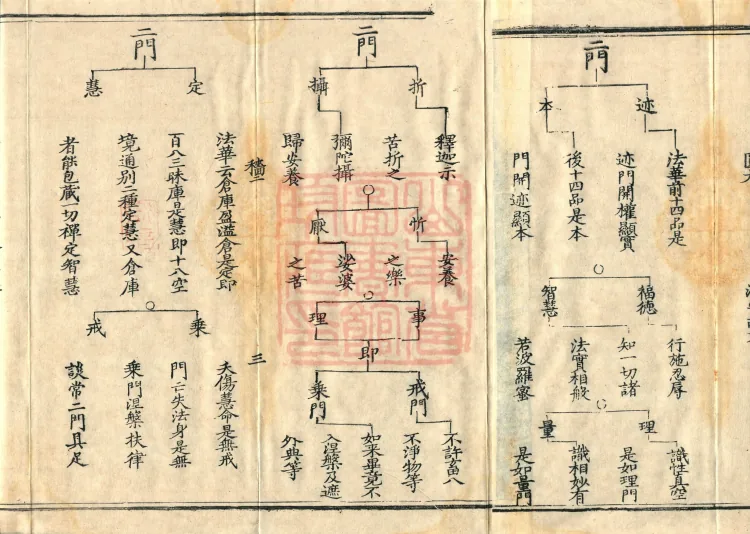 二門
迹
法華前十四品是
迹門開權顯實
本
後十四品是本
門開迹顯本
福德
行施忍辱
知一切諸
智慧
法實相般
若波羅蜜
理
識性真空
是如理門
量
識相妙有
是如量門
二門
折
釋迦示
苦折之
攝
彌陀攝
歸安養
忻
安養
之樂
厭
娑婆
之苦
事
理
即
戒門
不許畜八
不淨物等
乘門
如來畢竟不
入涅槃及遮
外典等
二
三
二門
定
法華云倉庫盈溢倉是定即
百八三昧庫是慧即十八空
慧
境通別二種定慧又倉庫
者能包藏一切禪定智慧
乘
夫傷慧命是無戒
門亡失法身是無
戒
乘門涅槃扶律
談常二門具足